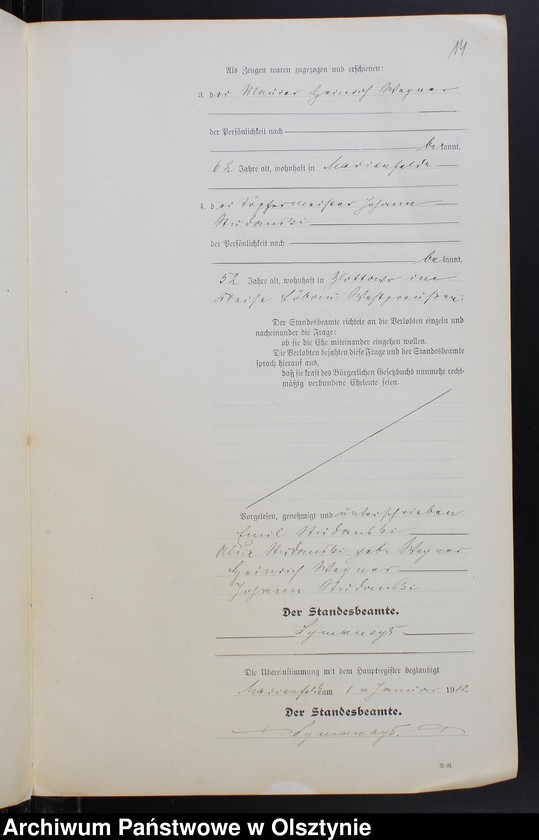 14
Als Zeugen waren zugezogen und erschienen:
3. der Maurer Heinrich Wegner
der Persönlichkeit nach
bekannt,
62 Jahre alt, wohnhaft in Marienfelde
4. der Töpfermeister Johann
Studanski
der Persönlichkeit nach
bekannt,
52 Jahre alt, wohnhaft in Zlottowo im
Kreise Löbau Westpreußen.
Der Standesbeamte richtete an die Verlobten einzeln und
nacheinander die Frage:
ob sie die Ehe miteinander eingehen wollen.
Die Verlobten bejahten diese Frage und der Standesbeamte
sprach hierauf aus,
daß sie kraft des Bürgerlichen Gesetzbuchs nunmehr recht-
mäßig verbundene Eheleute seien.
Vorgelesen, genehmigt und unterschrieben
Emil Studanski
Studanski geb. Wegner
Heinrich Wegner
Johann Studanski
Der Standesbeamte.
Die Übereinstimmung mit dem Hauptregister beglaubigt
Marienfelde am 1 ten Januar 1912.
Der Standesbeamte.
R.-R.
Archiwum Państwowe w Olsztynie